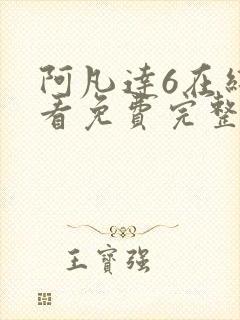 阿凡達6在線
看免費完整
王寶强